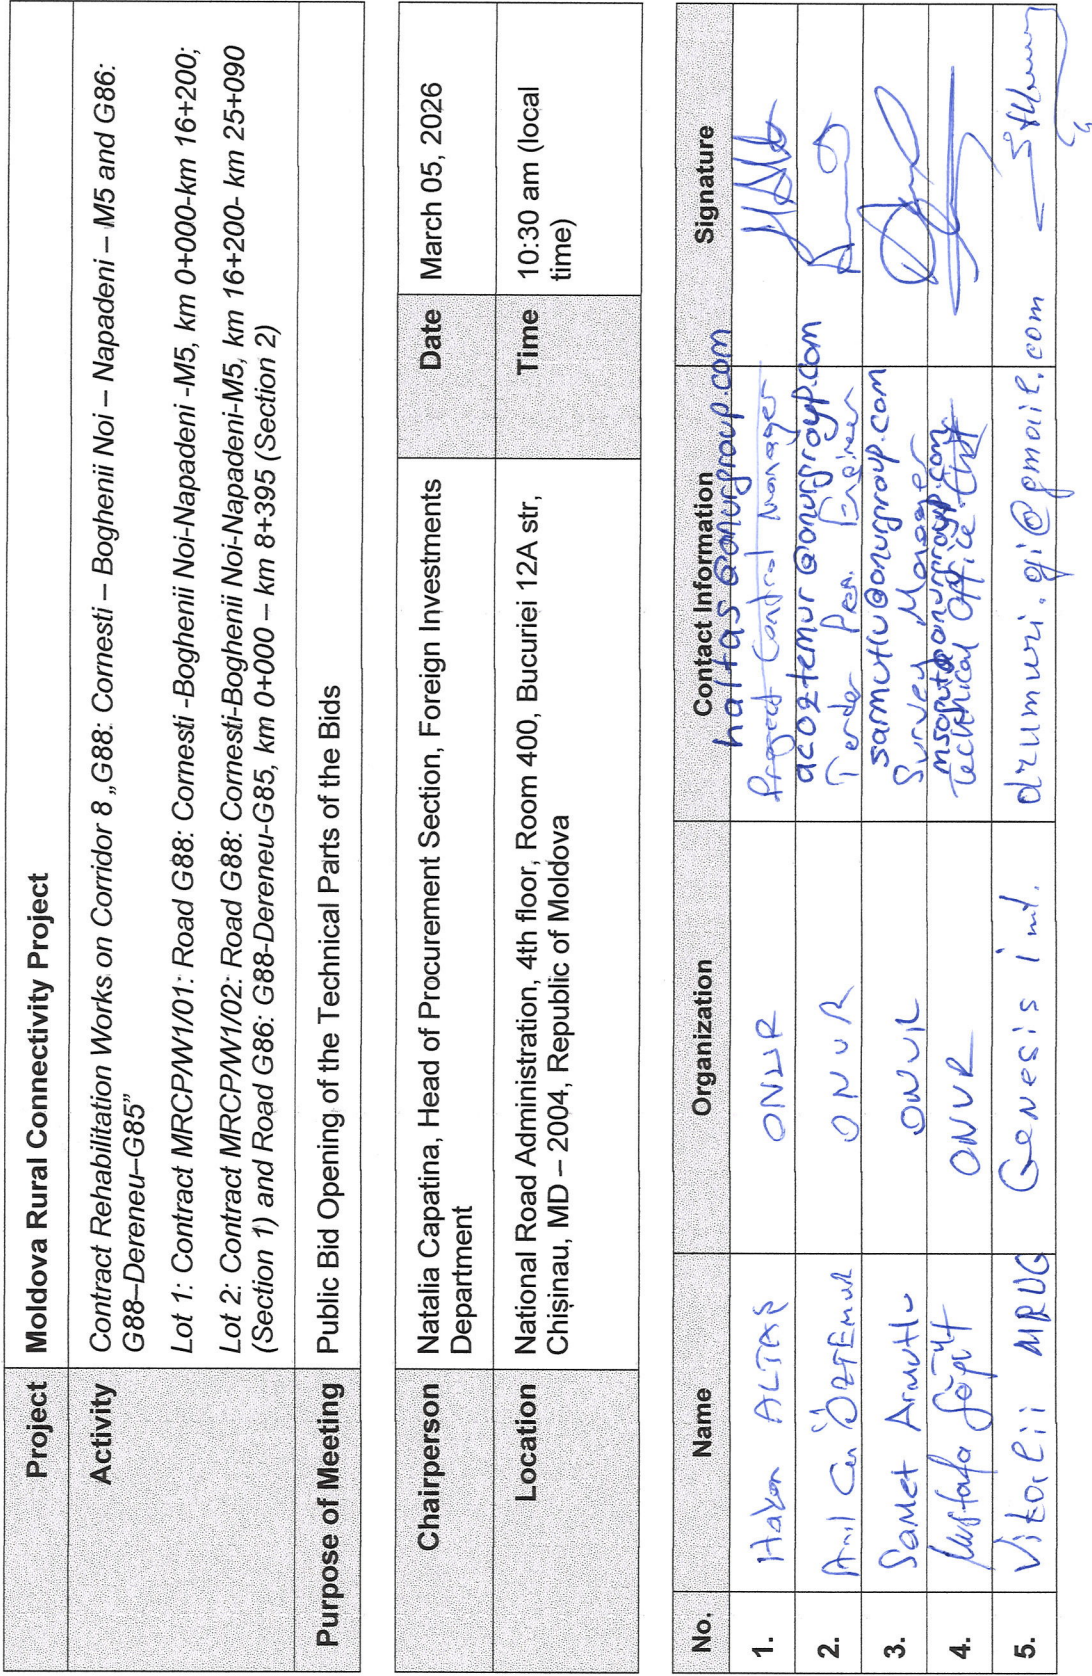 Project Moldova Rural Connectivity Project
Activity Contract Rehabilitation Works on Corridor 8 „G88: Cornesti – Boghenii Noi – Napadeni – M5 and G86:
G88–Dereneu–G85”
Lot 1: Contract MRCP/W1/01: Road G88: Cornesti -Boghenii Noi-Napadeni -M5, km 0+000-km 16+200;
Lot 2: Contract MRCP/W1/02: Road G88: Cornesti-Boghenii Noi-Napadeni-M5, km 16+200- km 25+090
(Section 1) and Road G86: G88-Dereneu-G85, km 0+000 – km 8+395 (Section 2)
Purpose of Meeting Public Bid Opening of the Technical Parts of the Bids
Chairperson Natalia Capatina, Head of Procurement Section, Foreign Investments
Department
Date March 05, 2026
Location National Road Administration, 4th floor, Room 400, Bucuriei 12A str,
Chișinau, MD – 2004, Republic of Moldova
Time 10:30 am (local
time)
No. Name Organization Contact Information Signature
haltas@onurgroup.com
1. Hakan ALTAŞ ONUR Project Control Manager
acoztemur@onurgroup.com
2. Anıl Can ÖZTEMUR ONUR Tender Engineer
sarmutlu@onurgroup.com
3. Samet Armutlu ONUR Survey Manager
4. Mustafa Söğüt ONUR Technical Office
5. Vitalii Genesis int. drumuri.gi@gmail.com